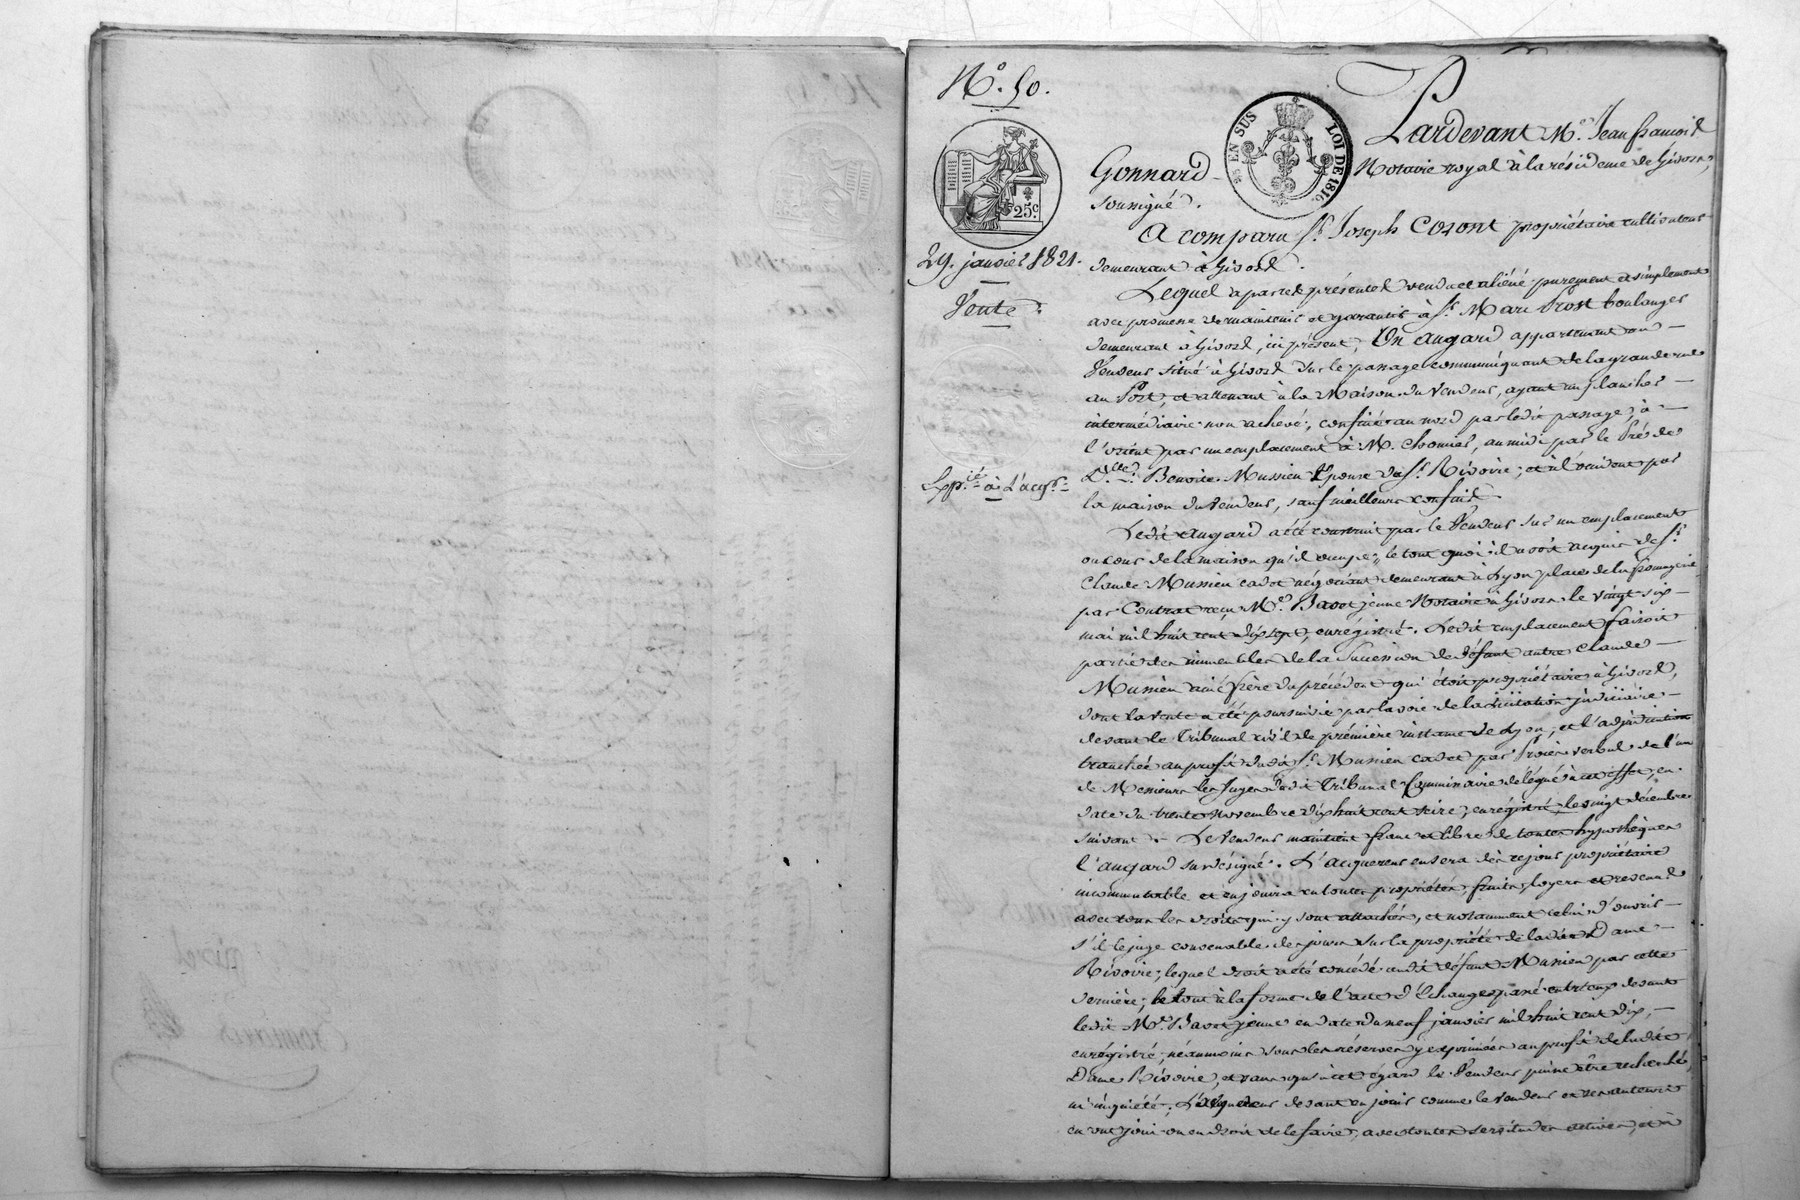 N.o 50.
25c
29. janvier 1821.
Vente
Exp.ié à l'acqr.
EN SUS LOI DE 1816
Pardevant Me. Jean françois
Gonnard Notaire royal à la résidence de Givors,
soussigné.
A comparu sr. Joseph Coront propriétaire cultivateur
demeurant à Givors.
Lequel a par ces présentes vendu et aliéné purement et simplement
avec promesse de maintenir et garantir à sr. Marc Prost boulanger
demeurant à Givors, ici présent, Un angard appartenant au
Vendeur situé à Givors sur le passage communiquant de la grande rue
au Port, et attenant à la Maison du Vendeur, ayant un plancher
intermédiaire non achevé, confiné au nord par ledit passage, à
l'orient par un emplacement à M. Chomier, au midi par le Pré de
Dlle. Benoite Mussieu Epouse du sr. Rivoire; et à l'occident par
la maison du Vendeur, sauf meilleurs confins.
Ledit angard a été construit par le Vendeur sur un emplacement
ou cour de la maison qu'il occupe, le tout quoi il avoit acquis de sr.
Claude Mussieu cadet négociant demeurant à Lyon place de la fromagerie
par Contrat reçu Me. Bavot jeune Notaire à Givors le vingt six
mai mil huit cent dix sept, enregistré. Ledit emplacement faisoit
partie des immeubles de la Succession de défunt autre Claude
Mussieu ainé frère du précédent qui étoit propriétaire à Givors,
dont la vente a été poursuivie par la voie de la licitation judiciaire
devant le Tribunal civil de première instance de Lyon, et l'adjudication
tranchée au profit dudit sr. Mussieu cadet par Procès verbal de l'un
de Messieurs les Juges dudit Tribunal Commissaire délégué à cet effet, en
date du trente novembre dix huit cent seize, enregistré le vingt décembre
suivant. Le Vendeur maintient franc et libre de toutes hypothèques
l'angard susdésigné. L'acquereur en sera dès ce jour propriétaire
incommutable et en jouira en toutes propriétés, fruits, loyers et revenus
avec tous les droits qui y sont attachés, et notamment celui d'ouvrir
s'il le juge convenable des jours sur la propriété de ladite Dame
Rivoire, lequel droit a été concédé audit défunt Mussieu par cette
dernière; le tout à la forme de l'acte d'Echange passé entr'eux devant
ledit Me. Bavot jeune en date du neuf janvier mil huit cent dix,
enregistré, néanmoins sous les réserves y exprimées au profit de ladite
Dame Rivoire, et sans qu'à cet égard le Vendeur puisse être recherché
ni inquiété. L'acquereur devant en jouir comme le vendeur et ses auteurs
en ont joui ou eu droit de le faire, avec toutes servitudes actives, et à